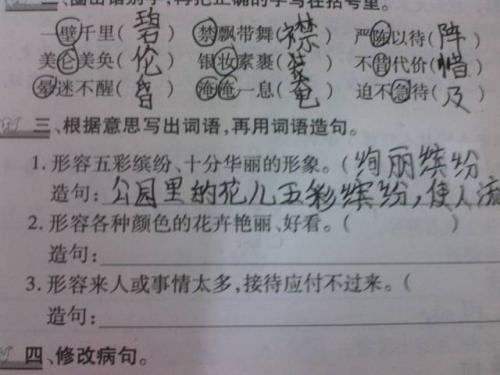 圈出错别字,再把正确的字写在括号里。
一壁千里(碧) 禁飘带舞(襟) 严陈以待(阵)
美仑美奂(伦) 银妆素裹(装) 不昔代价(惜)
晕迷不醒(昏) 淹淹一息(奄) 迫不急待(及)
三、根据意思写出词语,再用词语造句。
1. 形容五彩缤纷、十分华丽的形象。(绚丽缤纷
造句:公园里的花儿五彩缤纷,使人流
2. 形容各种颜色的花卉艳丽、好看。( )
造句:
3. 形容来人或事情太多,接待应付不过来。(
造句:
四、修改病句。